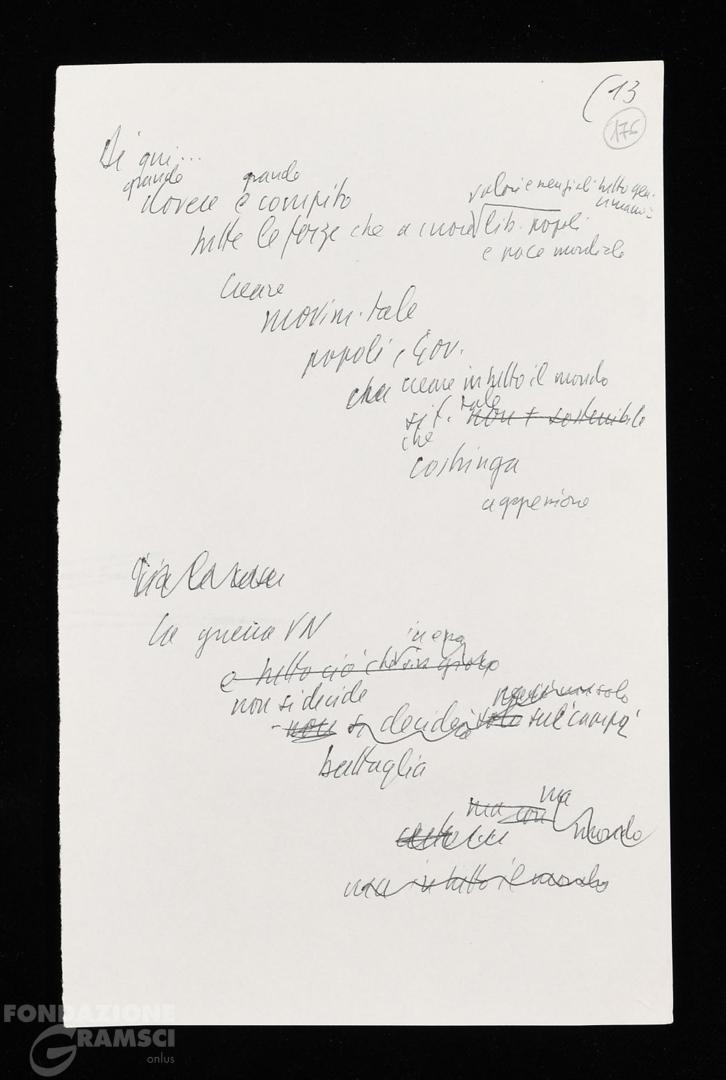 (13
175
Di qui...
grande grande
dovere e compito
valori essenziali tutto gen.
umano:
tutte le forze che a cuore lib. popoli
e pace mondiale
creare
movim. tale
popoli e Gov.
che creare in tutto il mondo
sit. tale non + sostenibile
che
costringa
aggressione
La guerra VN
e tutto ciò che in gioco
non si decide
non si deciderà solo sul campo
battaglia
ma
ma con mondo
ma in tutto il mondo
FONDAZIONE
GRAMSCI
onlus